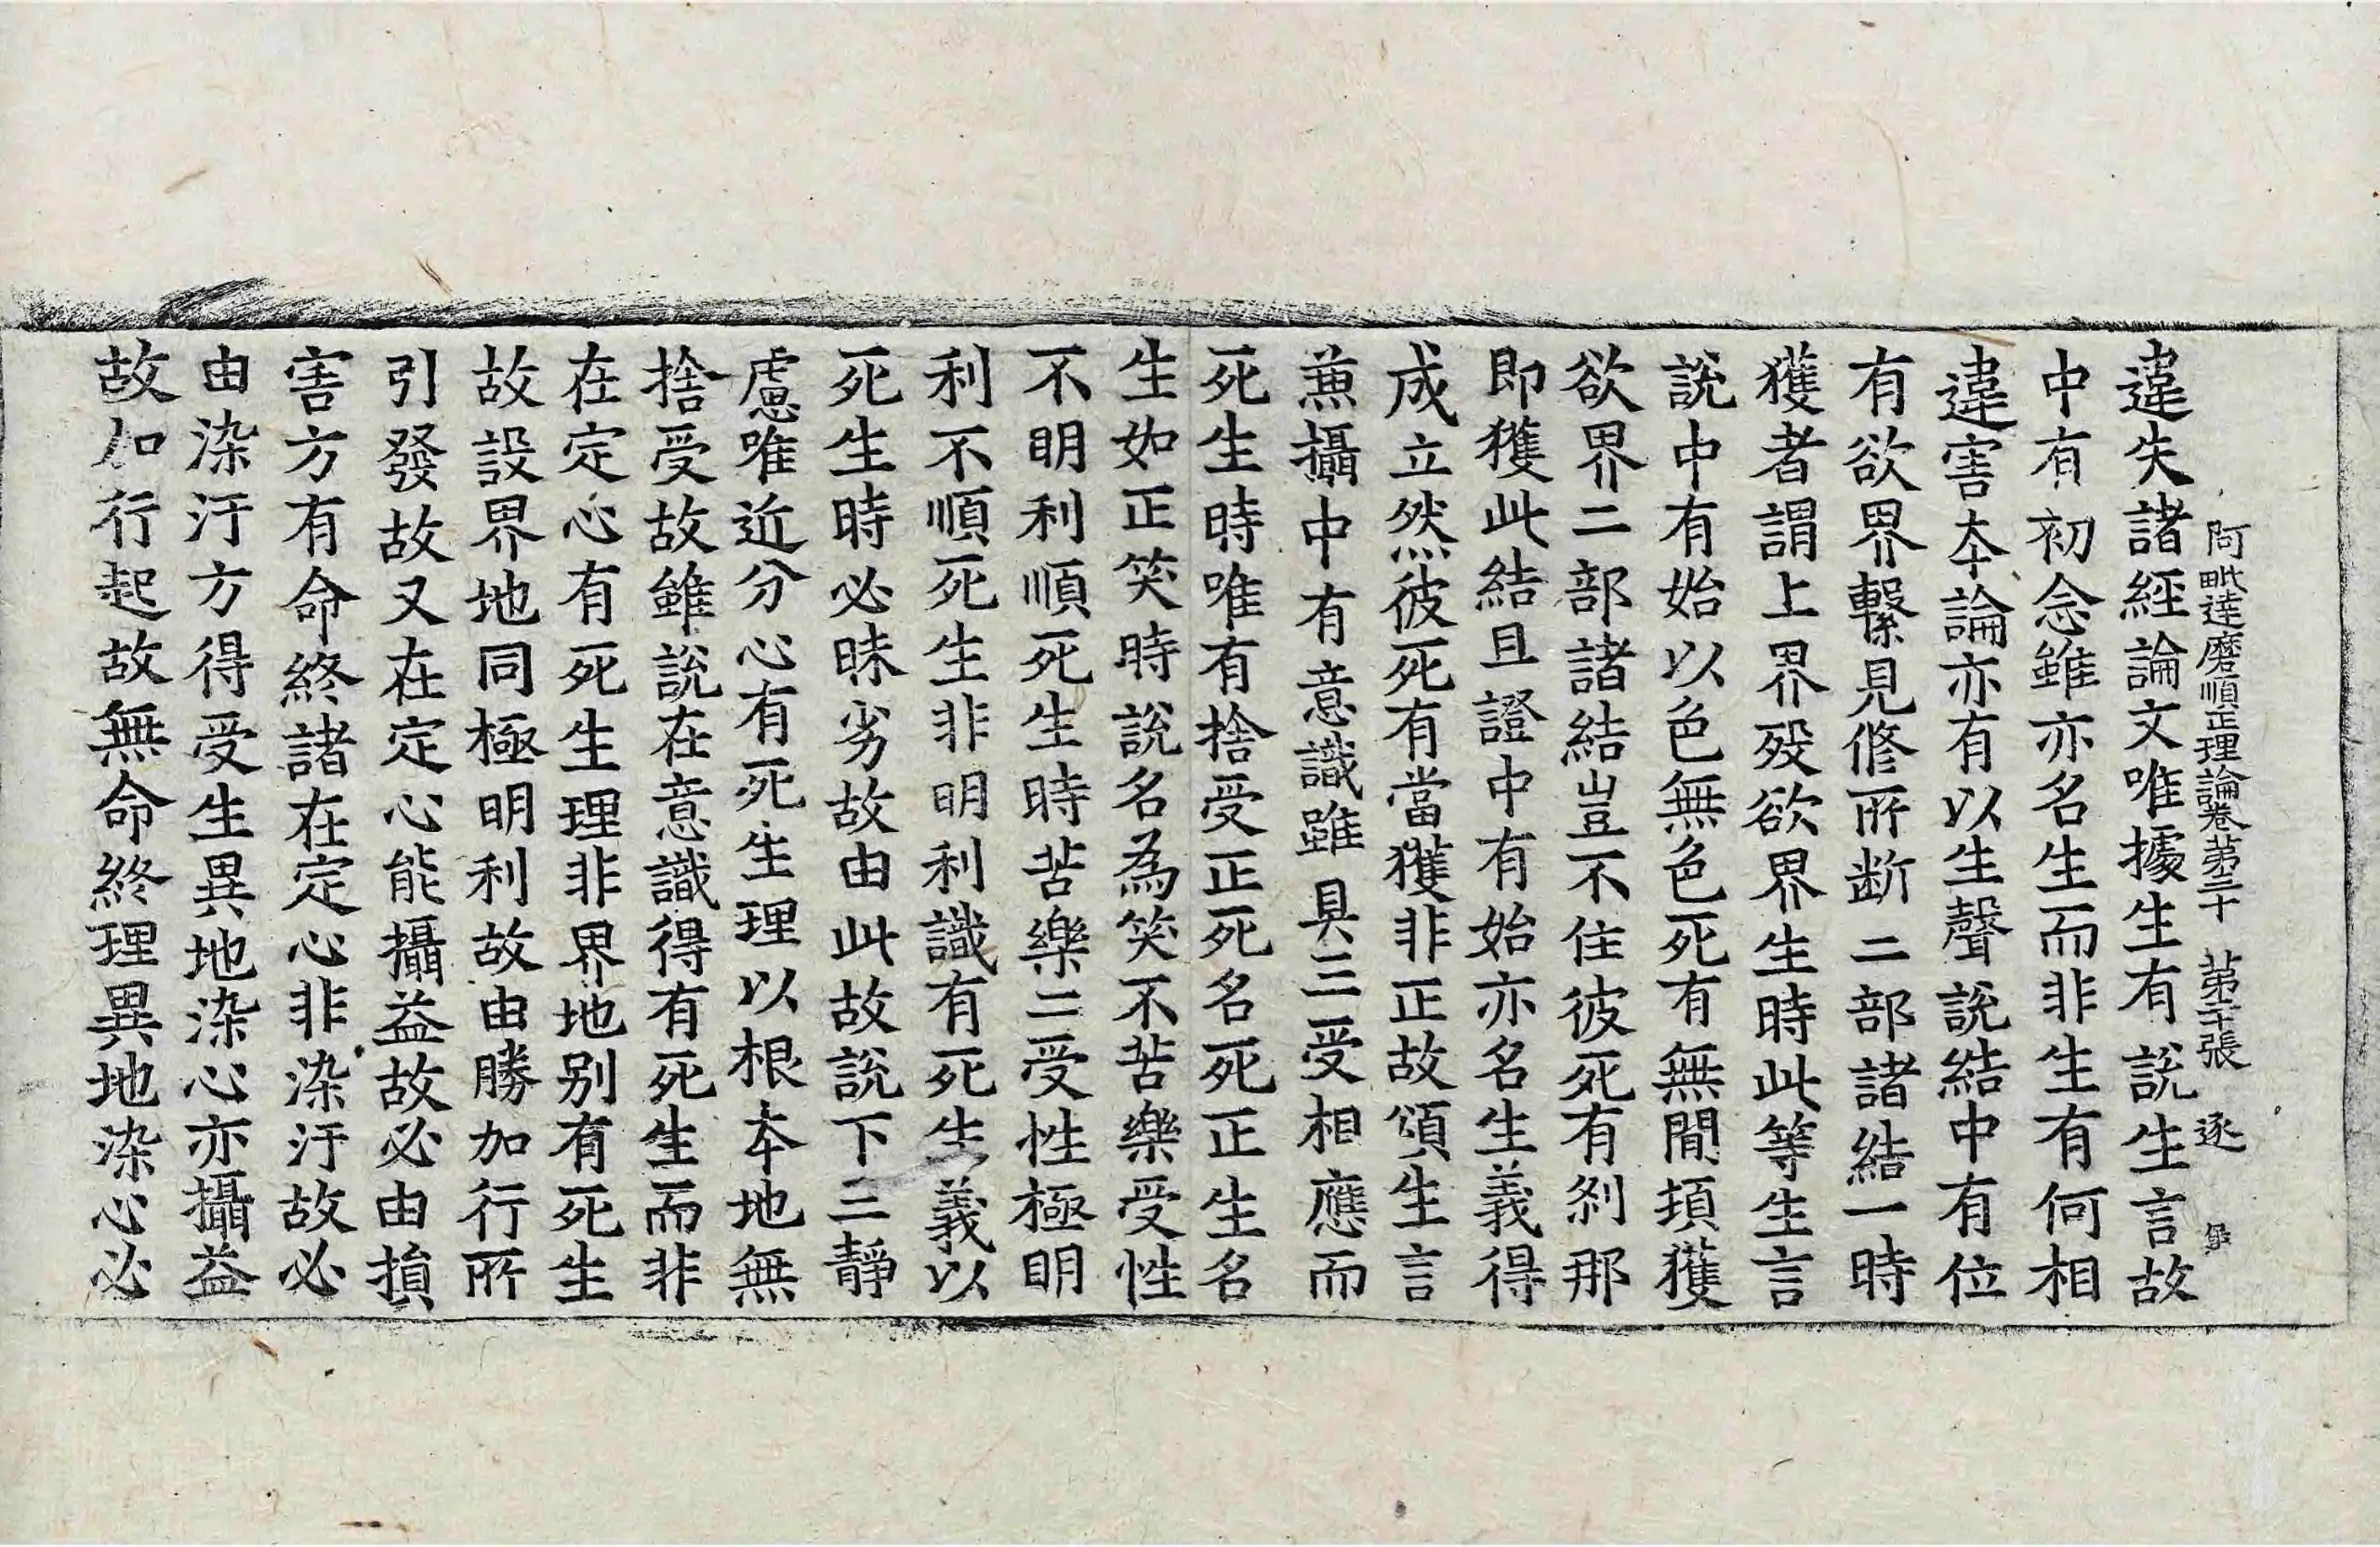 阿毗達磨順正理論卷第三十　第二十張　逐
違失諸經論文唯據生有說生言故
中有初念雖亦名生而非生有何相
違害本論亦有以生聲說結中有位
有欲界繫見修所斷二部諸結一時
獲者謂上界歿欲界生時此等生言
說中有始以色無色死有無間頓獲
欲界二部諸結豈不住彼死有剎那
即獲此結且證中有始亦名生義得
成立然彼死有當獲非正故頌生言
兼攝中有意識雖具三受相應而
死生時唯有捨受正死名死正生名
生如正笑時說名為笑不苦樂受性
不明利順死生時苦樂二受性極明
利不順死生非明利識有死生義以
死生時必昧劣故由此故說下三靜
慮唯近分心有死生理以根本地無
捨受故雖說在意識得有死生而非
在定心有死生理非界地別有死生
故設界地同極明利故由勝加行所
引發故又在定心能攝益故必由損
害方有命終諸在定心非染汙故必
由染汙方得受生異地染心亦攝益
故加行起故無命終理異地染心必